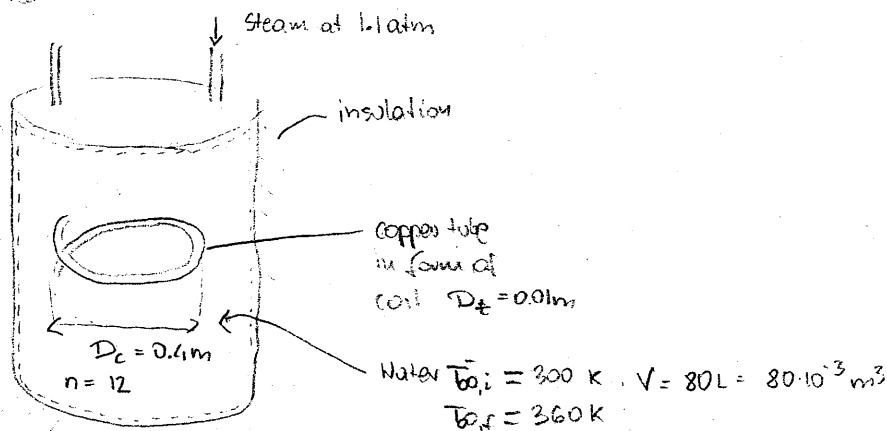 Steam at 1.1atm
insulation
copper tube
in form of
coil D_t = 0.01m
D_c = 0.4m
n = 12
Water T∞,i = 300 K . V = 80L = 80·10⁻³ m³
T∞,f = 360K